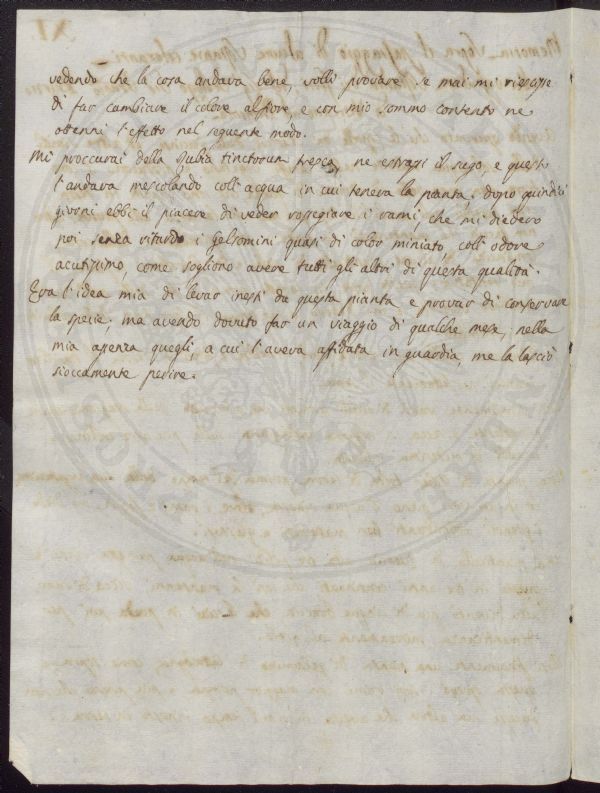 vedendo che la cosa andava bene, volli provare se mai mi riescisse
di far cambiare il colore al fiore, e con mio sommo contento ne
ottenni l'effetto nel seguente modo.
Mi proccurai della Rubia tinctorum fresca, ne estrassi il sugo, e questo
l'andava mescolando coll'acqua in cui teneva la pianta; dopo quindici
giorni ebbi il piacere di veder rosseggiare i rami, che mi diedero
poi senza ritardo i Gelsomini quasi di color miniato, coll'odore
acutissimo, come sogliono avere tutti gli altri di questa qualità.
Era l'idea mia di levar inesti da questa pianta e provar di conservare
la specie, ma avendo dovuto far un viaggio di qualche mese, nella
mia assenza quegli, a cui l'aveva affidata in guardia, me la lasciò
sioccamente perire.